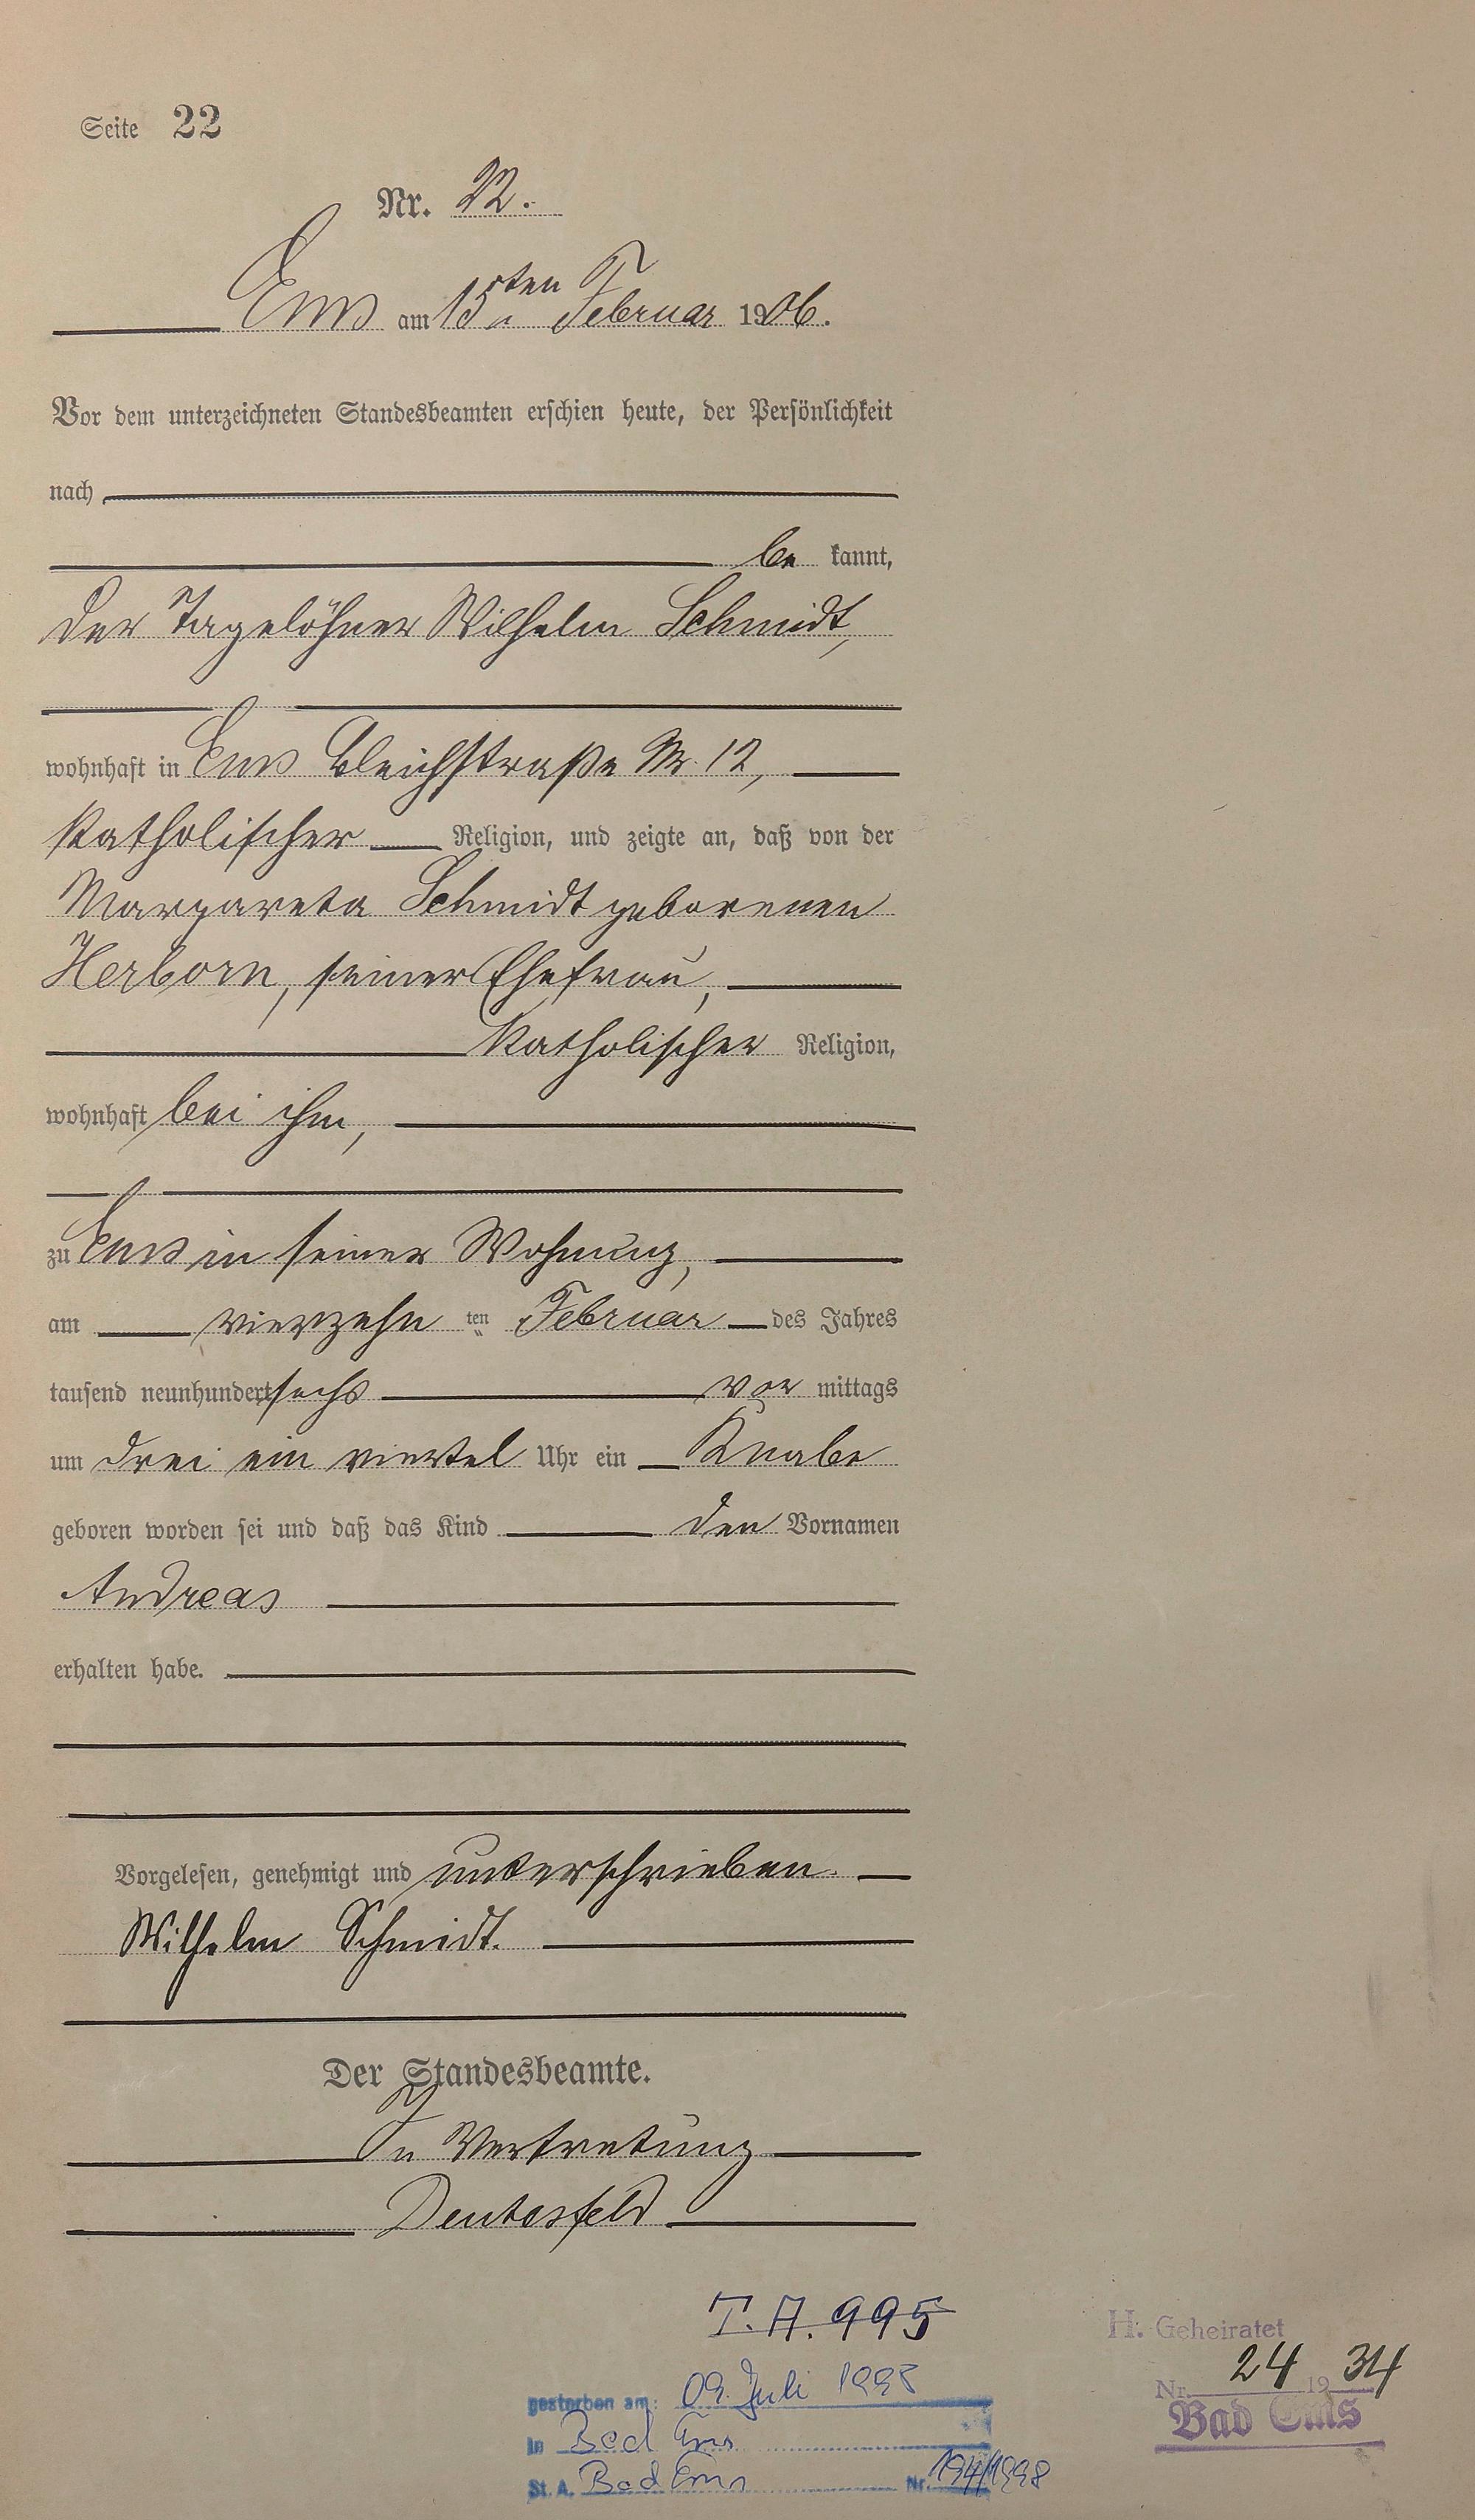 Seite 22
Nr. 22.
Ems am 15ten Februar 1906.
Vor dem unterzeichneten Standesbeamten erschien heute, der Persönlichkeit
nach
be kannt,
der Tagelöhner Wilhelm Schmidt,
wohnhaft in Ems Bleichstraße Nr. 12,
katholischer Religion, und zeigte an, daß von der
Margareta Schmidt geborenen
Herborn, seiner Ehefrau,
katholischer Religion,
wohnhaft bei ihm,
zu Ems in seiner Wohnung,
am vierzehn ten Februar des Jahres
tausend neunhundert sechs vor mittags
um drei ein viertel Uhr ein Knabe
geboren worden sei und daß das Kind den Vornamen
Andreas
erhalten habe.
Vorgelesen, genehmigt und unterschrieben.
Wilhelm Schmidt.
Der Standesbeamte.
In Vertretung
Deutesfeld
T. A. 995
gestorben am: 09. Juli 1998
in Bad Ems
St. A. Bad Ems Nr. 194/1998
H. Geheiratet
Nr. 24 1934
Bad Ems